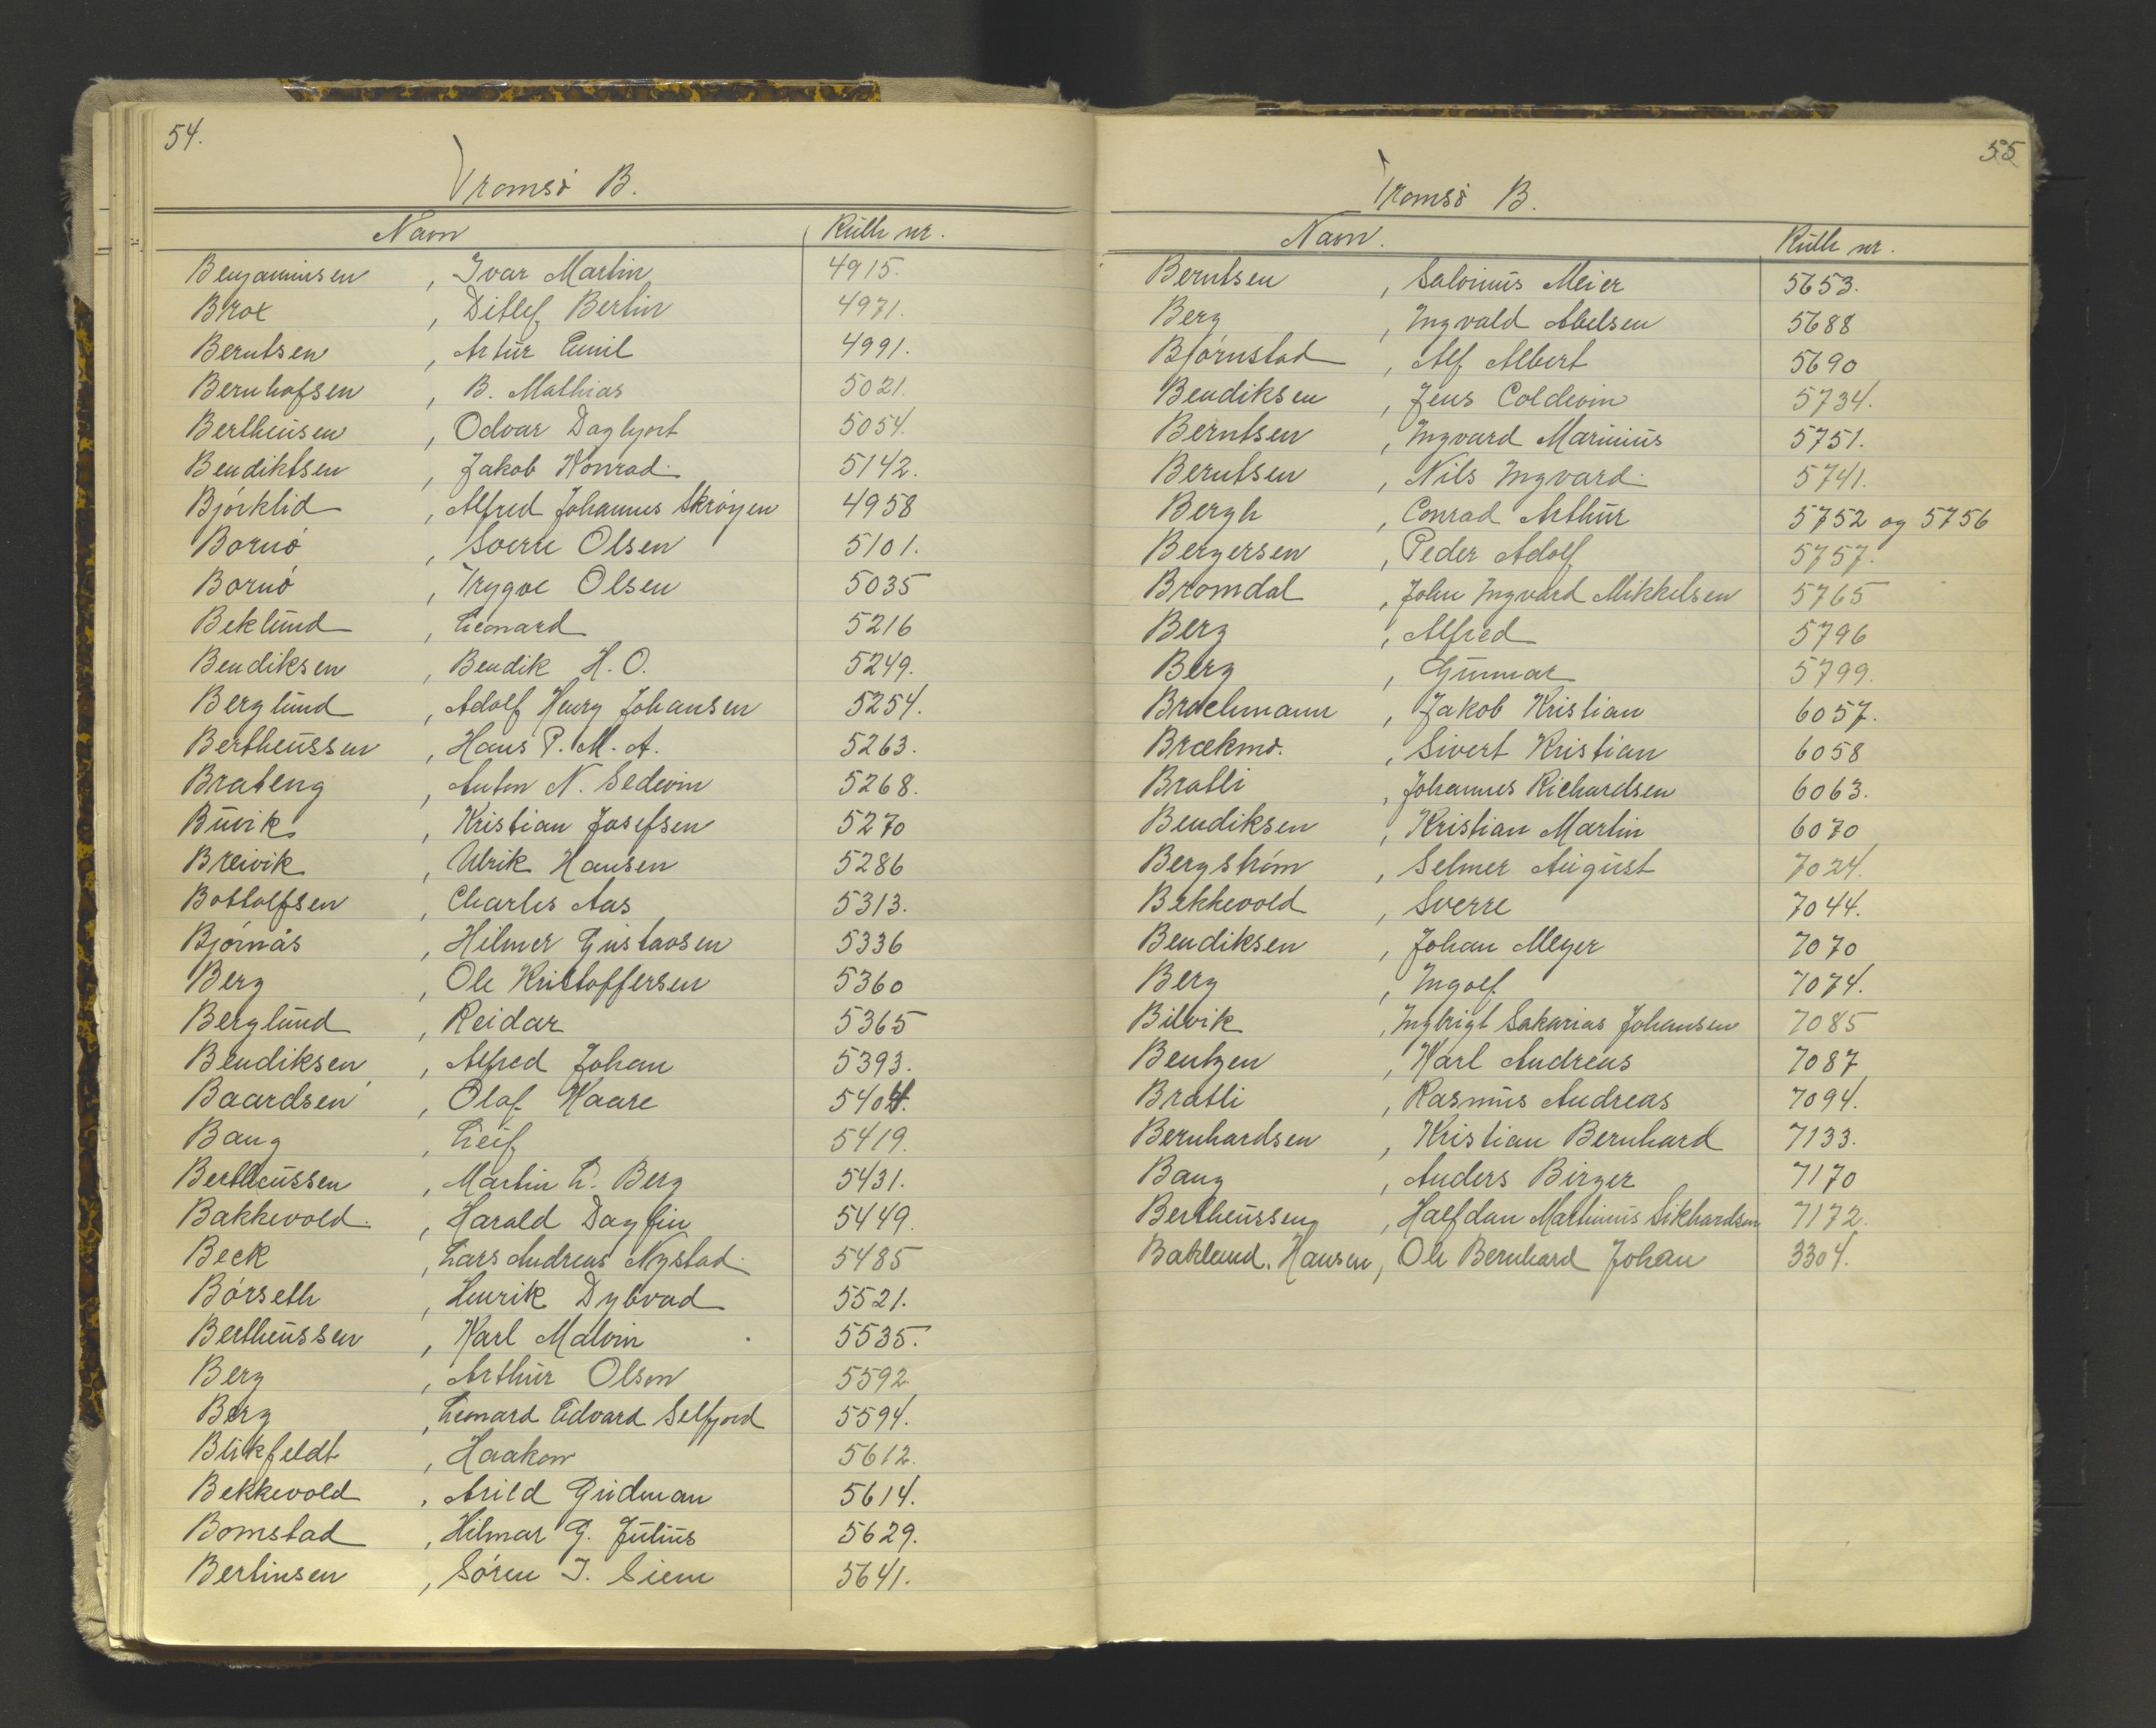 54.
Tromsö B.
Navn Rulle nr.
Benjaminsen, Ivar Martin 4915.
Brox, Ditlef Bertin 4971.
Berntsen, Artur Emil 4991.
Bernhofsen, B. Mathias 5021.
Bertheusen, Odvar Daghjort 5054.
Bendiktsen, Jakob Konrad. 5142.
Bjørklid, Alfred Johannes Skrøyen 4958
Bornø, Sverre Olsen 5101.
Bornø, Trygve Olsen 5035
Beklund, Leonard 5216
Bendiksen, Bendik H. O. 5249.
Berglund, Adolf Henry Johansen 5254.
Bertheussen, Hans P. M. A. 5263.
Brateng, Anton N. Sedevin 5268.
Buvik, Kristian Josefsen 5270
Breivik, Ulrik Hansen 5286
Bottolfsen, Charles Aas 5313.
Bjørnås, Hilmer Gustavsen 5336
Berg, Ole Kristoffersen 5360
Berglund, Reidar 5365
Bendiksen, Alfred Johan 5393.
Baardsen, Olaf Kaare 5404.
Bang, Leif 5419.
Bertheussen, Martin L. Berg 5431.
Bakkevold., Harald Dagfin 5449.
Beck, Lars Andreas Nystad. 5485
Børseth, Henrik Dybvad 5521.
Bertheussen, Karl Malvin 5535.
Berg, Arthur Olson 5592
Berg, Leonard Edvard Selfjord 5594.
Blikfeldt, Haakon 5612.
Bekkevold, Arild Gudman 5614.
Bomstad, Hilmar G. Julius 5629.
Bertinsen, Søren J. Siem 5641.
55
Tromsö B.
Navn. Rulle nr.
Berntsen, Salonius Meier 5653.
Berg, Ingvald Abelsen 5688
Bjørnstad, Alf Albert 5690
Bendiksen, Jens Coldevin 5734.
Berntsen, Ingvard Marinius 5751.
Berntsen, Nils Ingvard. 5741.
Bergh, Conrad Arthur 5752 og 5756
Bergersen, Peder Adolf 5757.
Bromdal, John Ingvard Mikkelsen 5765
Berg, Alfred 5796
Berg, Gunnar 5799.
Brochmann, Jakob Kristian 6057.
Brækmo., Sivert Kristian 6058
Bratli, Johannes Richardsen 6063.
Bendiksen, Kristian Martin 6070
Bergstrøm, Selmer August 7024.
Bekkevold, Sverre 7044.
Bendiksen, Johan Meyer 7070
Berg, Ingolf 7074.
Bilvik, Ingbrigt Sakarias Johansen 7085
Bentzen, Karl Andreas 7087
Bratli, Rasmus Andreas 7094.
Bernhardsen, Kristian Bernhard 7133.
Bang, Anders Birger 7170
Bertheussen, Halfdan Martinus Sikhardsen 7172.
Baklund. Hansen, Ole Bernhard Johan 3304.